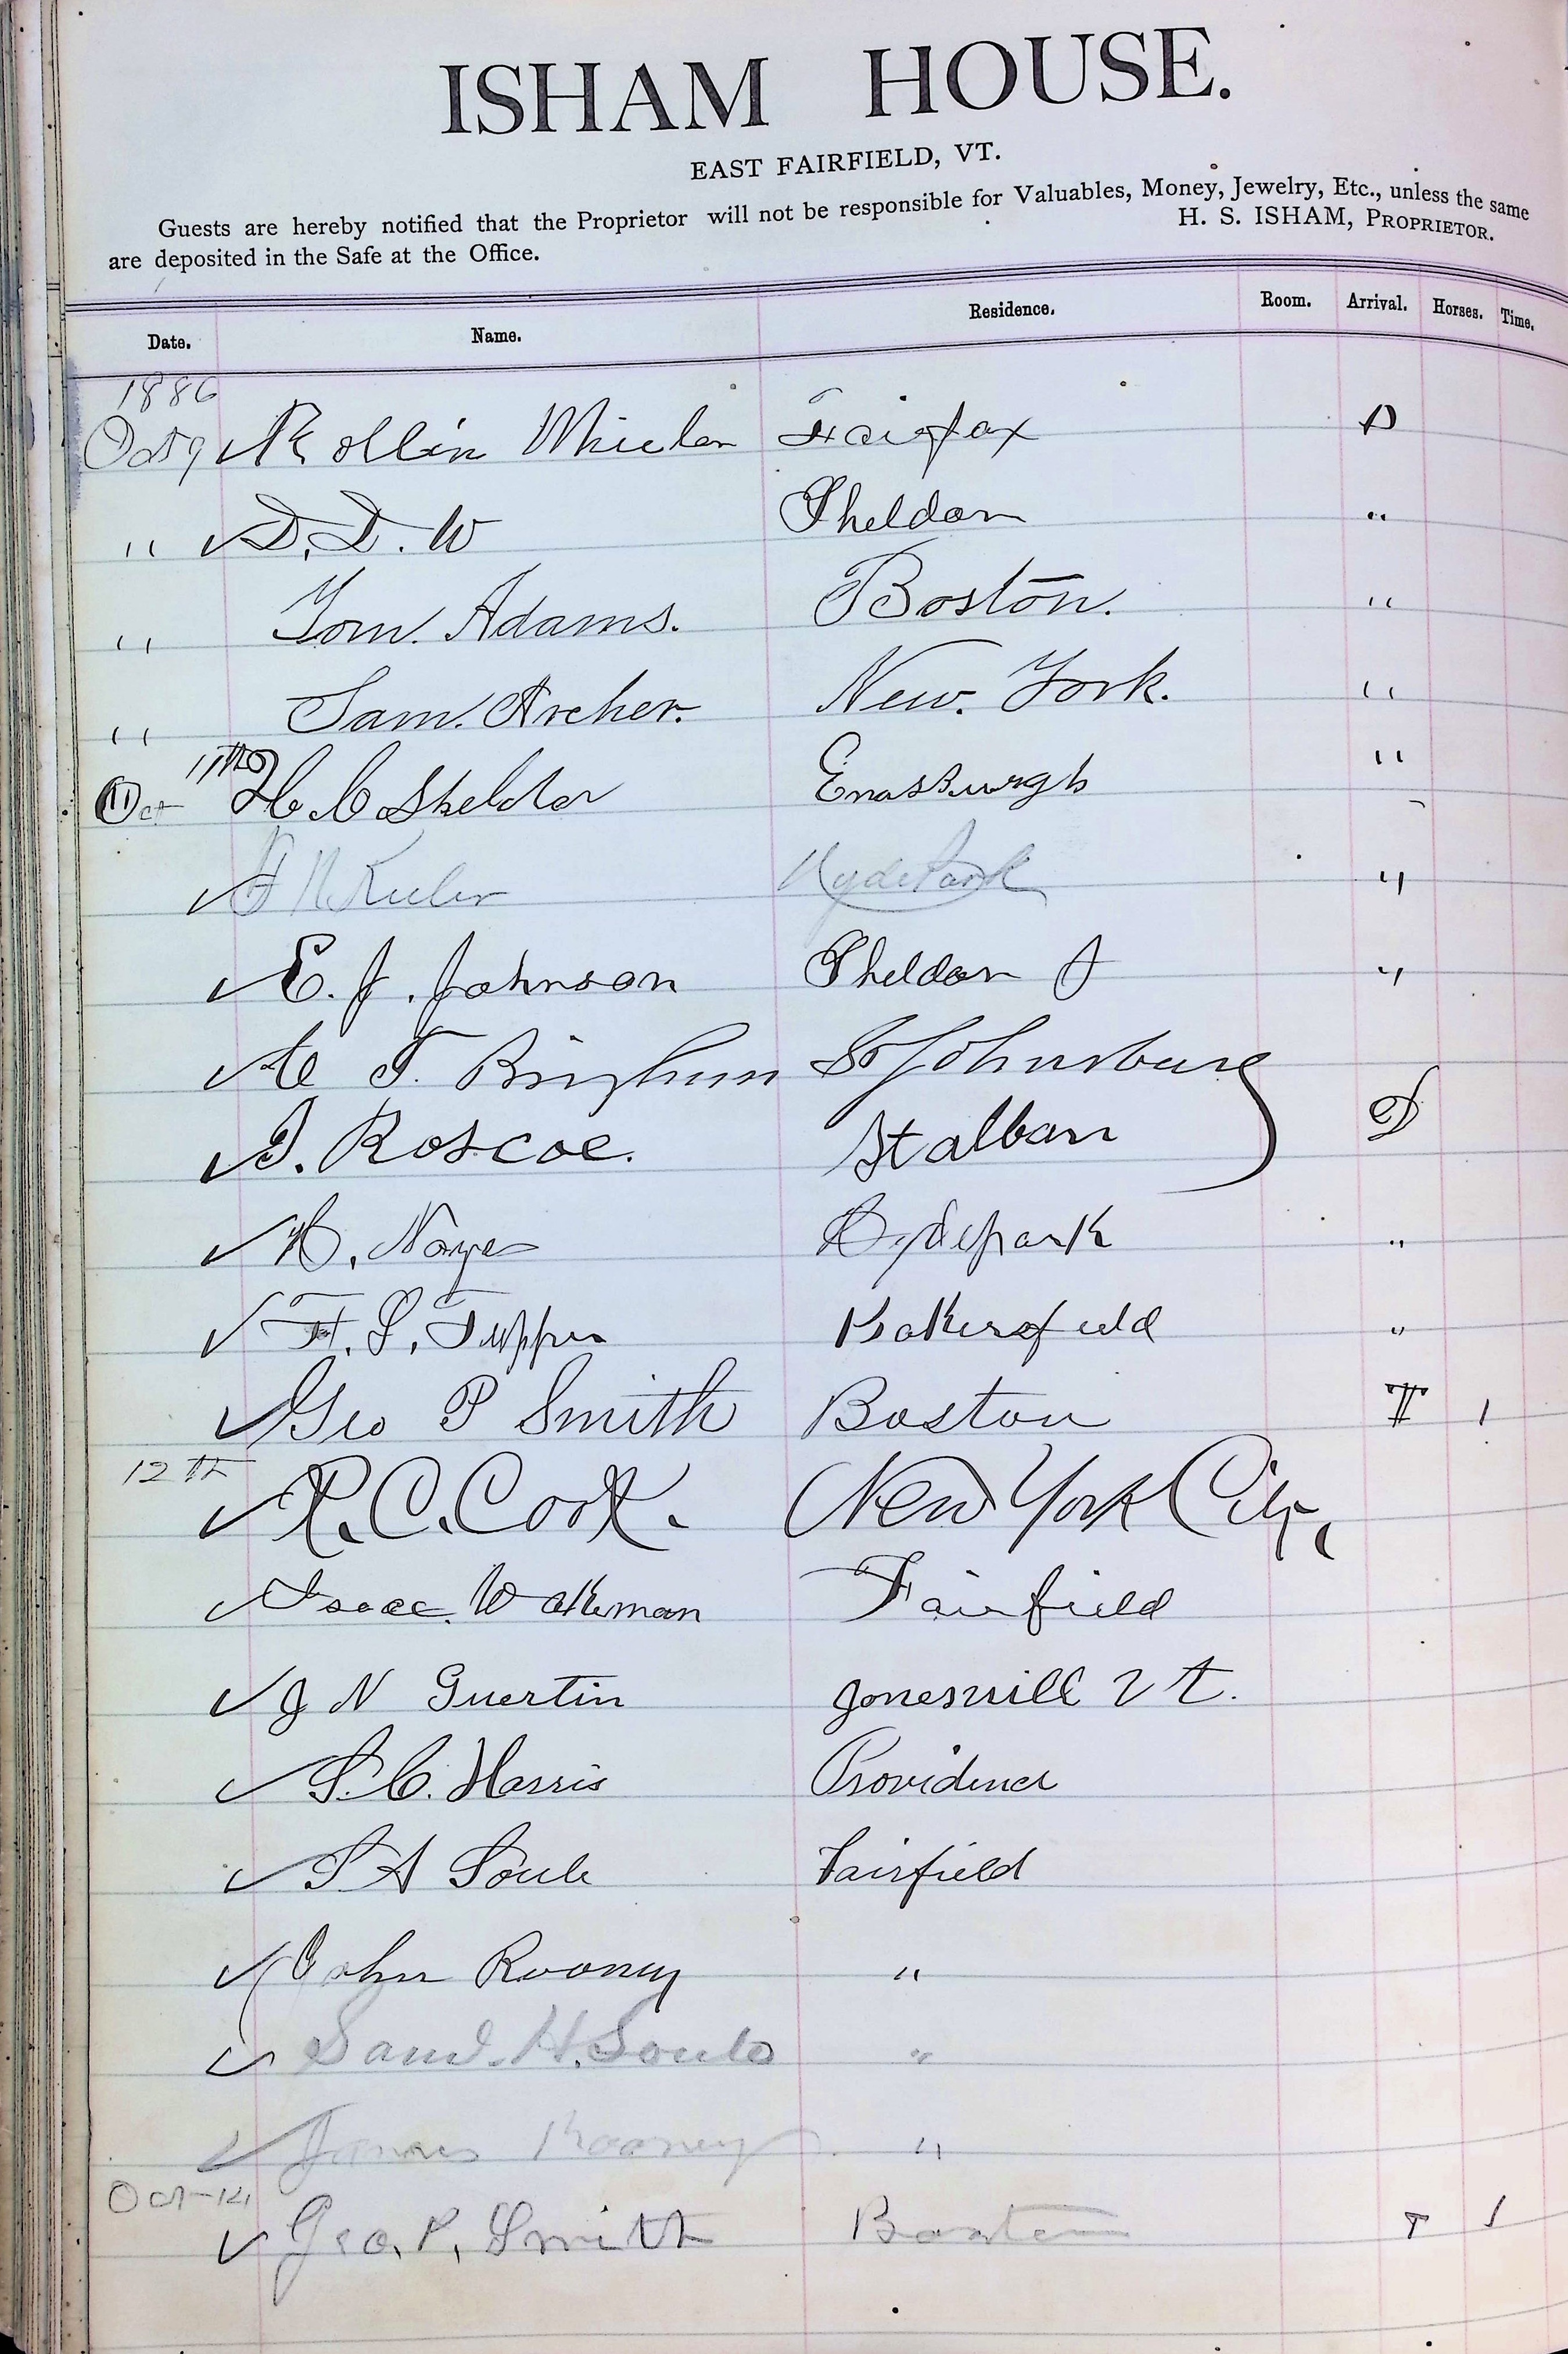 ISHAM HOUSE.
EAST FAIRFIELD, VT.
Guests are hereby notified that the Proprietor will not be responsible for Valuables, Money, Jewelry, Etc., unless the same
are deposited in the Safe at the Office. H. S. ISHAM, PROPRIETOR.
Date. Name. Residence. Room. Arrival. Horses. Time.
1886
Oct 9 Rollin Fairfax D
" D. D. W Sheldon "
" Tom. Adams. Boston. "
" Sam. Archer. New. York. "
Oct 11th H C Sheldon Enosburgh "
Hyde Park "
E. J. Johnson Sheldon J "
C F. Bingham St Johnsbury
J. Roscoe. St alban D
H. Noyes Hydepark "
F. L. Tupper Bakersfield "
Geo P Smith Boston T 1
12th R. C. Cook. New York City,
Isaac. Wakeman Fairfield
J N Guertin Jonesvill Vt.
S. C. Harris Providence
S A Soule Fairfield
John Rooney "
Saml. H. Soule "
James Rooney "
Oct 14
Geo. P. Smith Boston T 1